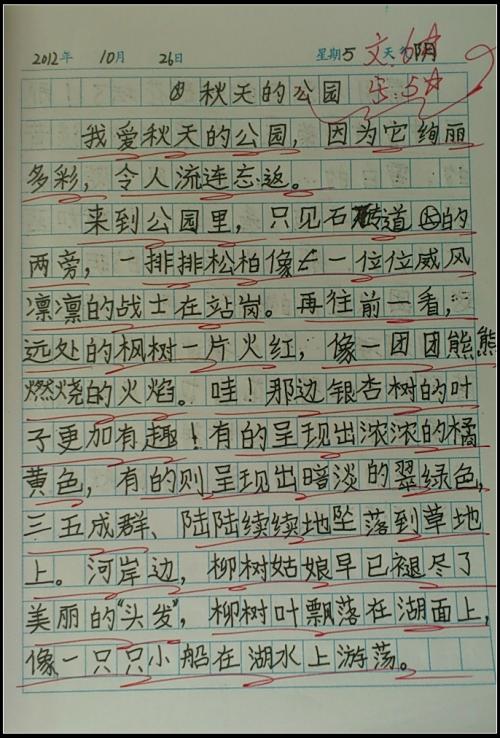 2012年 10月 26日 星期5 文:6☆ 天气 阴
秋天的公园 字:5☆
我爱秋天的公园，因为它绚丽
多彩，令人流连忘返。
来到公园里，只见石砖道的
两旁，一排排松柏像一位位威风
凛凛的战士在站岗。再往前一看，
远处的枫树一片火红，像一团团熊熊
燃烧的火焰。哇！那边银杏树的叶
子更加有趣！有的呈现出浓浓的橘
黄色，有的则呈现出暗淡的翠绿色，
三五成群、陆陆续续地坠落到草地
上。河岸边，柳树姑娘早已褪尽了
美丽的“头发”，柳树叶飘落在湖面上，
像一只只小船在湖水上游荡。